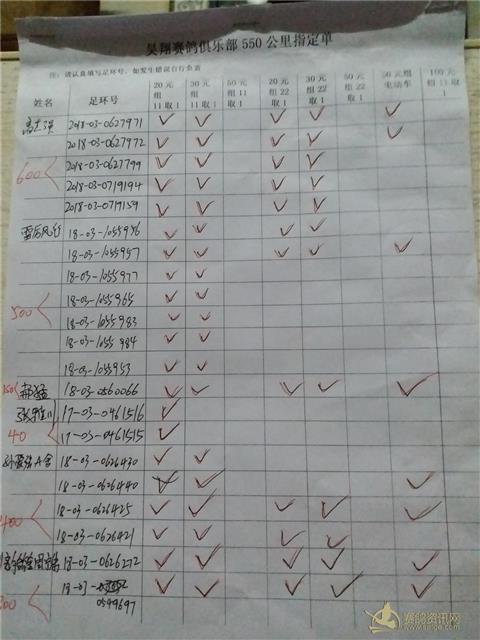 昊翔赛鸽俱乐部 550 公里指定单
注：请认真填写足环号，如发生错误自行负责
姓名 足环号 20元组11取1 30元组11取1 50元组11取1 20元组22取1 30元组22取1 50元组22取1 50元组电动车 100元组11取1
2018-03-0627971 ✓ ✓ ✓ ✓ ✓
2018-03-0627972 ✓ ✓ ✓ ✓ ✓
2018-03-0627799 ✓ ✓ ✓ ✓
600
2018-03-0719194 ✓ ✓ ✓ ✓
2018-03-0719159 ✓ ✓ ✓ ✓
雷厉风行 18-03-1055946 ✓ ✓ ✓ ✓
18-03-1055957 ✓ ✓ ✓ ✓ ✓
18-03-1055977 ✓ ✓
18-03-1055965 ✓ ✓
500
18-03-1055983 ✓ ✓
18-03-1055984 ✓ ✓
18-03-1055953 ✓ ✓
150 18-03-0560066 ✓ ✓ ✓ ✓ ✓
17-03-0461516 ✓
40
17-03-0461515 ✓
18-03-0626430 ✓ ✓
18-03-0626440 ✓ ✓ ✓
18-03-0626425 ✓ ✓ ✓ ✓ ✓
400
18-03-0626421 ✓ ✓ ✓ ✓
18-03-0626272 ✓ ✓ ✓ ✓ ✓
18-03- ✓ ✓ ✓ ✓ ✓
0599697
300
赛鸽资讯网
www.saige.com